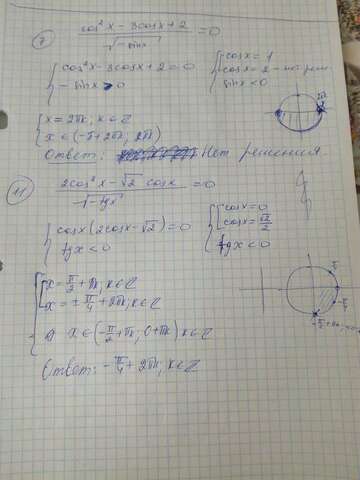 7) cos²x - 3cosx + 2 / √-sinx = 0
{ cos²x - 3cosx + 2 = 0
- sinx > 0
{ [ cosx = 1
cosx = 2 - нет реш
sinx < 0
2π
{ x = 2πk, k ∈ Z
x ∈ (-π+2πk, 2πk)
Ответ: Нет решения
11) 2cos²x - √2 cosx / √-tgx = 0
{ cosx(2cosx - √2) = 0
tgx < 0
{ [ cosx = 0
cosx = √2/2
tgx < 0
{ [ x = π/2 + πk, k ∈ Z
x = ± π/4 + 2πk, k ∈ Z
x ∈ (-π/2 + πk; 0 + πk) k ∈ Z
Ответ: -π/4 + 2πk, k ∈ Z